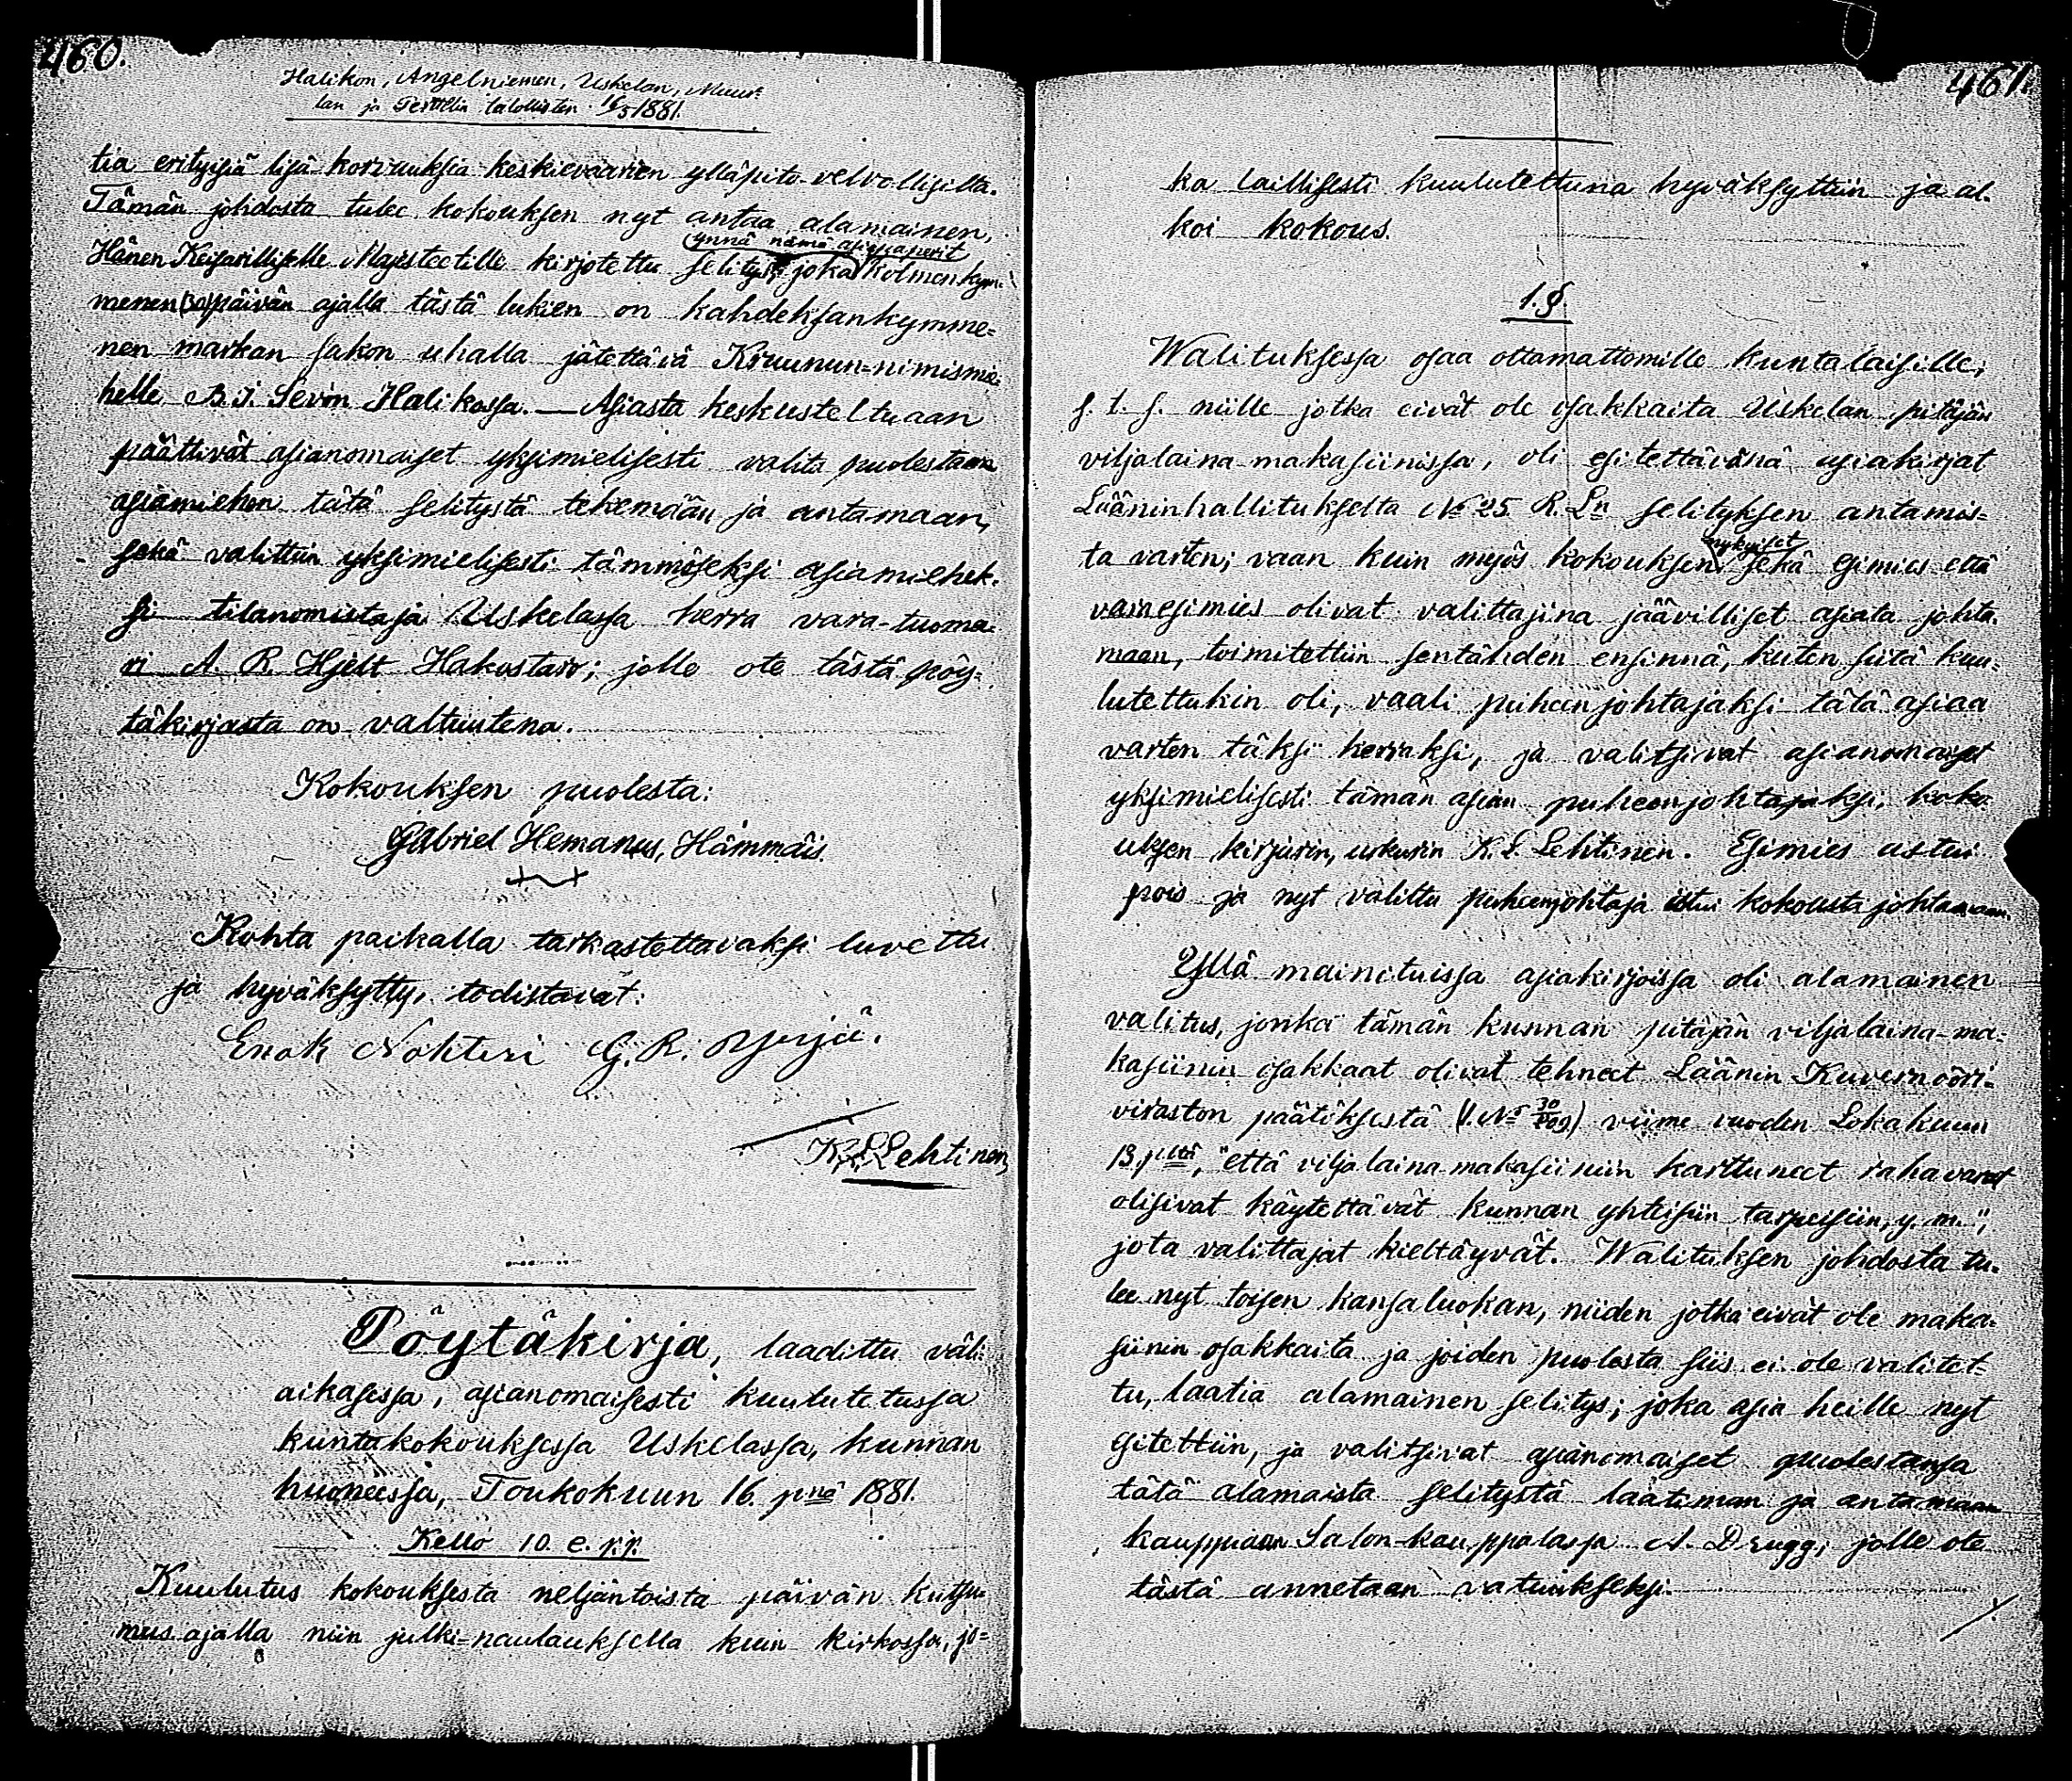 460.
Halikon, Angelniemen, Uskelan, Muur-
lan ja Perttelin talollisten 16/5 1881.
tia erityisiä lisä-korvauksia keskievaarien ylläpito-velvollisilta.
Tämän johdosta tulee kokouksen nyt antaa alamainen,
ynnä nämä asiapaperit
Hänen Keisarilliselle Majesteetille kirjotettu selitys, joka kolmenkym-
menen (30) päivän ajalla tästä lukien on kahdeksankymme-
nen markan sakon uhalla jätettävä Kruunun-nimismie-
helle B. J. Sevón Halikossa. — Asiasta keskusteltuaan
päättivät asianomaiset yksimielisesti valita puolestaan
asiamiehen tätä selitystä tekemään ja antamaan,
sekä valittiin yksimielisesti tämmöseksi asiamiehek-
si tilanomistaja Uskelassa herra vara-tuoma-
ri A. R. Hjelt Hakostaro; jolle ote tästä pöy-
täkirjasta on valtuutena.
Kokouksen puolesta:
Gabriel Hemanus, Hämmäis.
Kohta paikalla tarkastettavaksi luvettu
ja hyväksytty, todistavat:
Enok Nohteri G. R. Yrjä.
K. L. Lehtinen
Pöytäkirja, laadittu väli-
aikasessa, asianomaisesti kuulutetussa
kuntakokouksessa Uskelassa, kunnan
huoneessa, Toukokuun 16. p:nä 1881.
Kello 10 e. p.p.
Kuulutus kokouksesta neljäntoista päivän kutsu-
mus ajalla niin julki-naulauksella kuin kirkossa, jo-
461.
ka laillisesti kuulutettuna hyväksyttiin ja al-
koi kokous.
1. §.
Walituksessa osaa ottamattomille kuntalaisille,
s. t. s. niille jotka eivät ole osakkaita Uskelan pitäjän
viljalaina-makasiinissa, oli esitettävänä asiakirjat
Lääninhallitukselta No 25 R. Ln selityksen antamis-
nykyiset
ta varten; vaan kuin myös kokouksen sekä esimies että
varaesimies olivat valittajina jäävilliset asiata johta-
maan, toimitettiin sentähden ensinnä, kuten siitä kuu-
lutettukin oli, vaali puheenjohtajaksi tätä asiaa
varten täksi kerraksi, ja valitsivat asianomaiset
yksimielisesti tämän asian puheenjohtajaksi, koko-
uksen kirjurin, urkurin K. L. Lehtinen. Esimies astui
pois ja nyt valittu puheenjohtaja istui kokousta johtamaan.
Yllä mainituissa asiakirjoissa oli alamainen
valitus, jonka tämän kunnan pitäjän viljalaina-ma-
kasiinin osakkaat olivat tehneet Läänin Kuvernööri-
viraston päätöksestä viime vuoden Lokakuun
13. p:ltä, "että viljalaina-makasiiniin karttuneet rahavarat
olisivat käytettävät kunnan yhteisiin tarpeisiin, y. m.",
jota valittajat kieltäyvät. Walituksen johdosta tu-
lee nyt toisen kansaluokan, niiden jotka eivät ole maka-
siinin osakkaita ja joiden puolesta siis ei ole valitet-
tu, laatia alamainen selitys; joka asia heille nyt
esitettiin, ja valitsivat asianomaiset puolestansa
tätä alamaista selitystä laatiman ja antamaan
kauppiaan Salon-kauppalassa A. Drugg, jolle ote
tästä annetaan vatuukseksi.